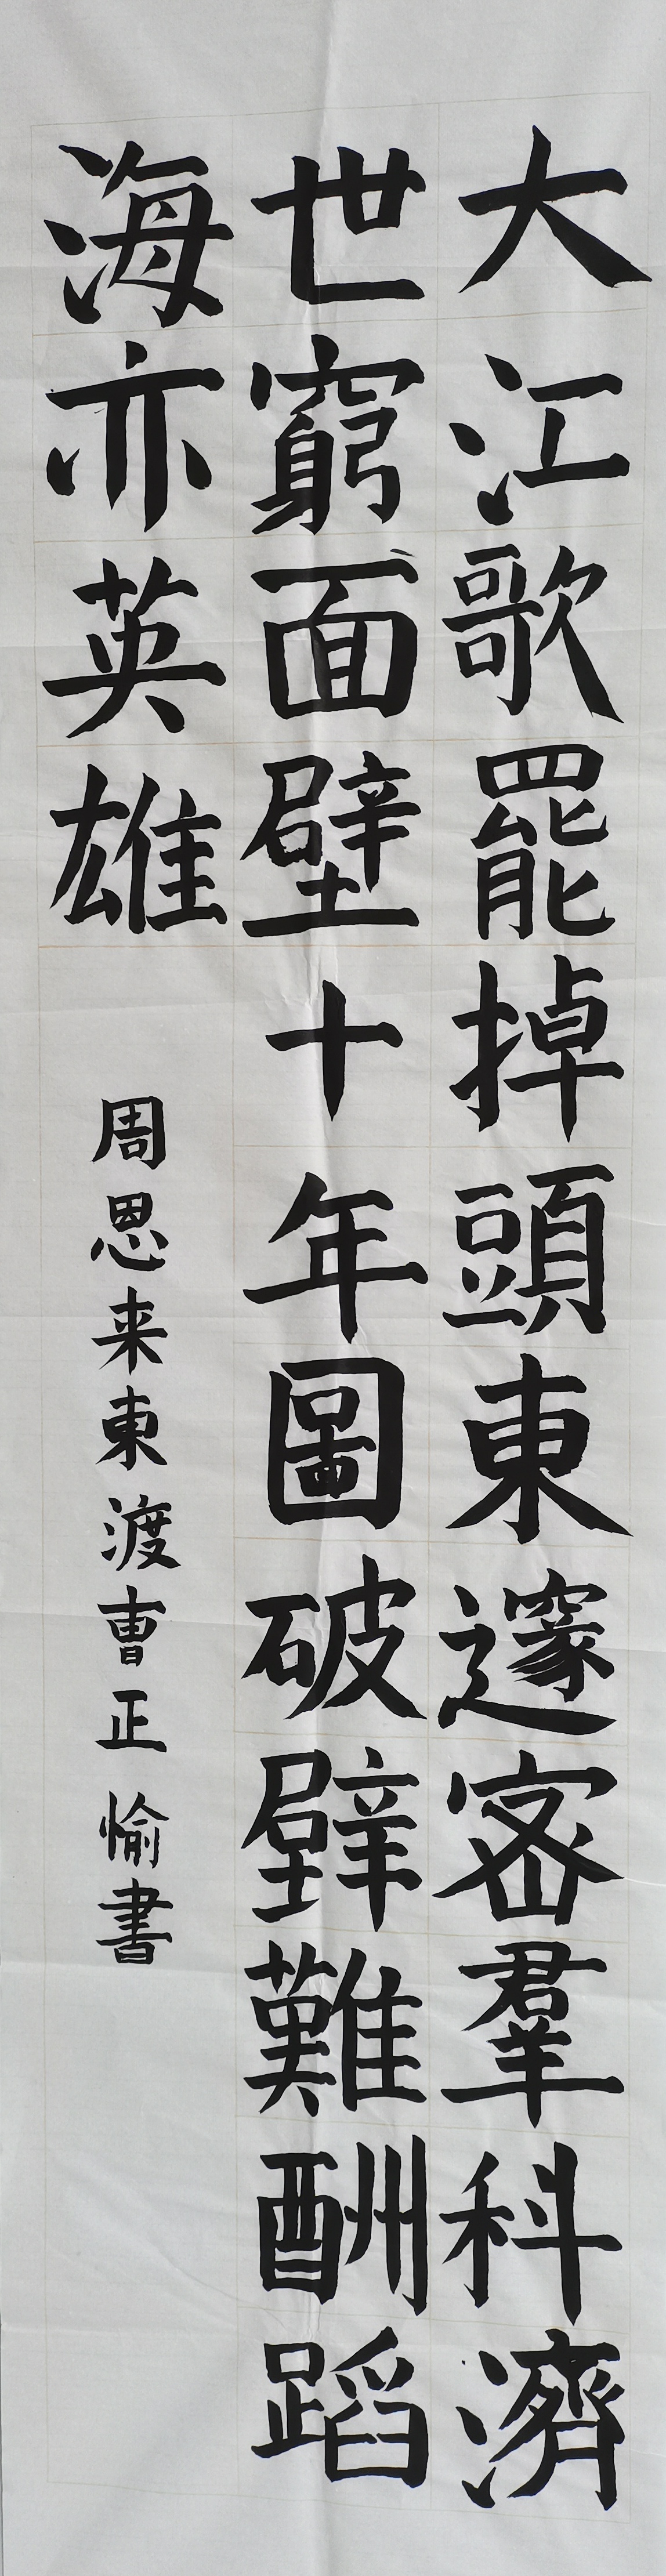 大江歌罷掉頭東邃密羣科濟
世窮面壁十年圖破壁難酬蹈
海亦英雄
周恩来東渡曹正愉書